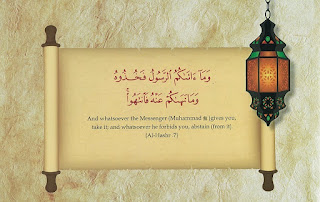 وَمَآ ءَاتَىٰكُمُ ٱلرَّسُولُ فَخُذُوهُ
وَمَا نَهَىٰكُمْ عَنْهُ فَٱنتَهُوا۟ۚ
And whatsoever the Messenger (Muhammad ﷺ )gives you,
take it; and whatsoever he forbids you, abstain (from it)
(Al-Hashr :7)